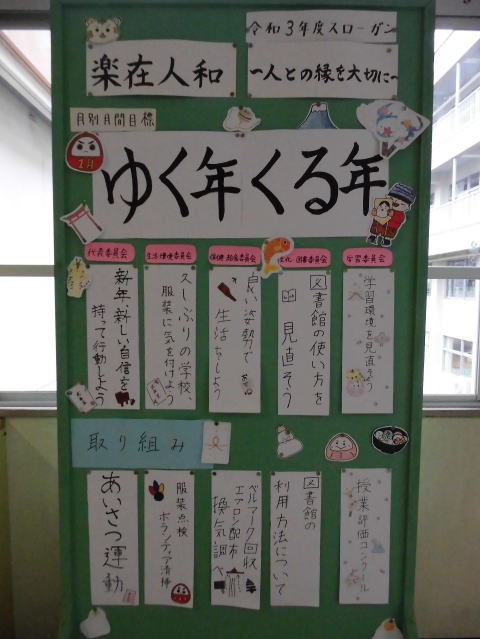 令和3年度スローガン
楽在人和
～人との縁を大切に～
月別月間目標
1月
ゆく年くる年
代表委員会
新年、新しい自信を
持って行動しよう
生活・環境委員会
久しぶりの学校、
服装に気を付けよう
保健・給食委員会
良い姿勢で
生活をしよう
図書委員会
図書館の使い方を
見直そう
学習委員会
学習環境を見直そう
取り組み
あいさつ運動
服装点検
ボランティア清掃
ベルマーク回収
エプロン配布
換気調べ
図書館の
利用方法について
授業評価コンクール